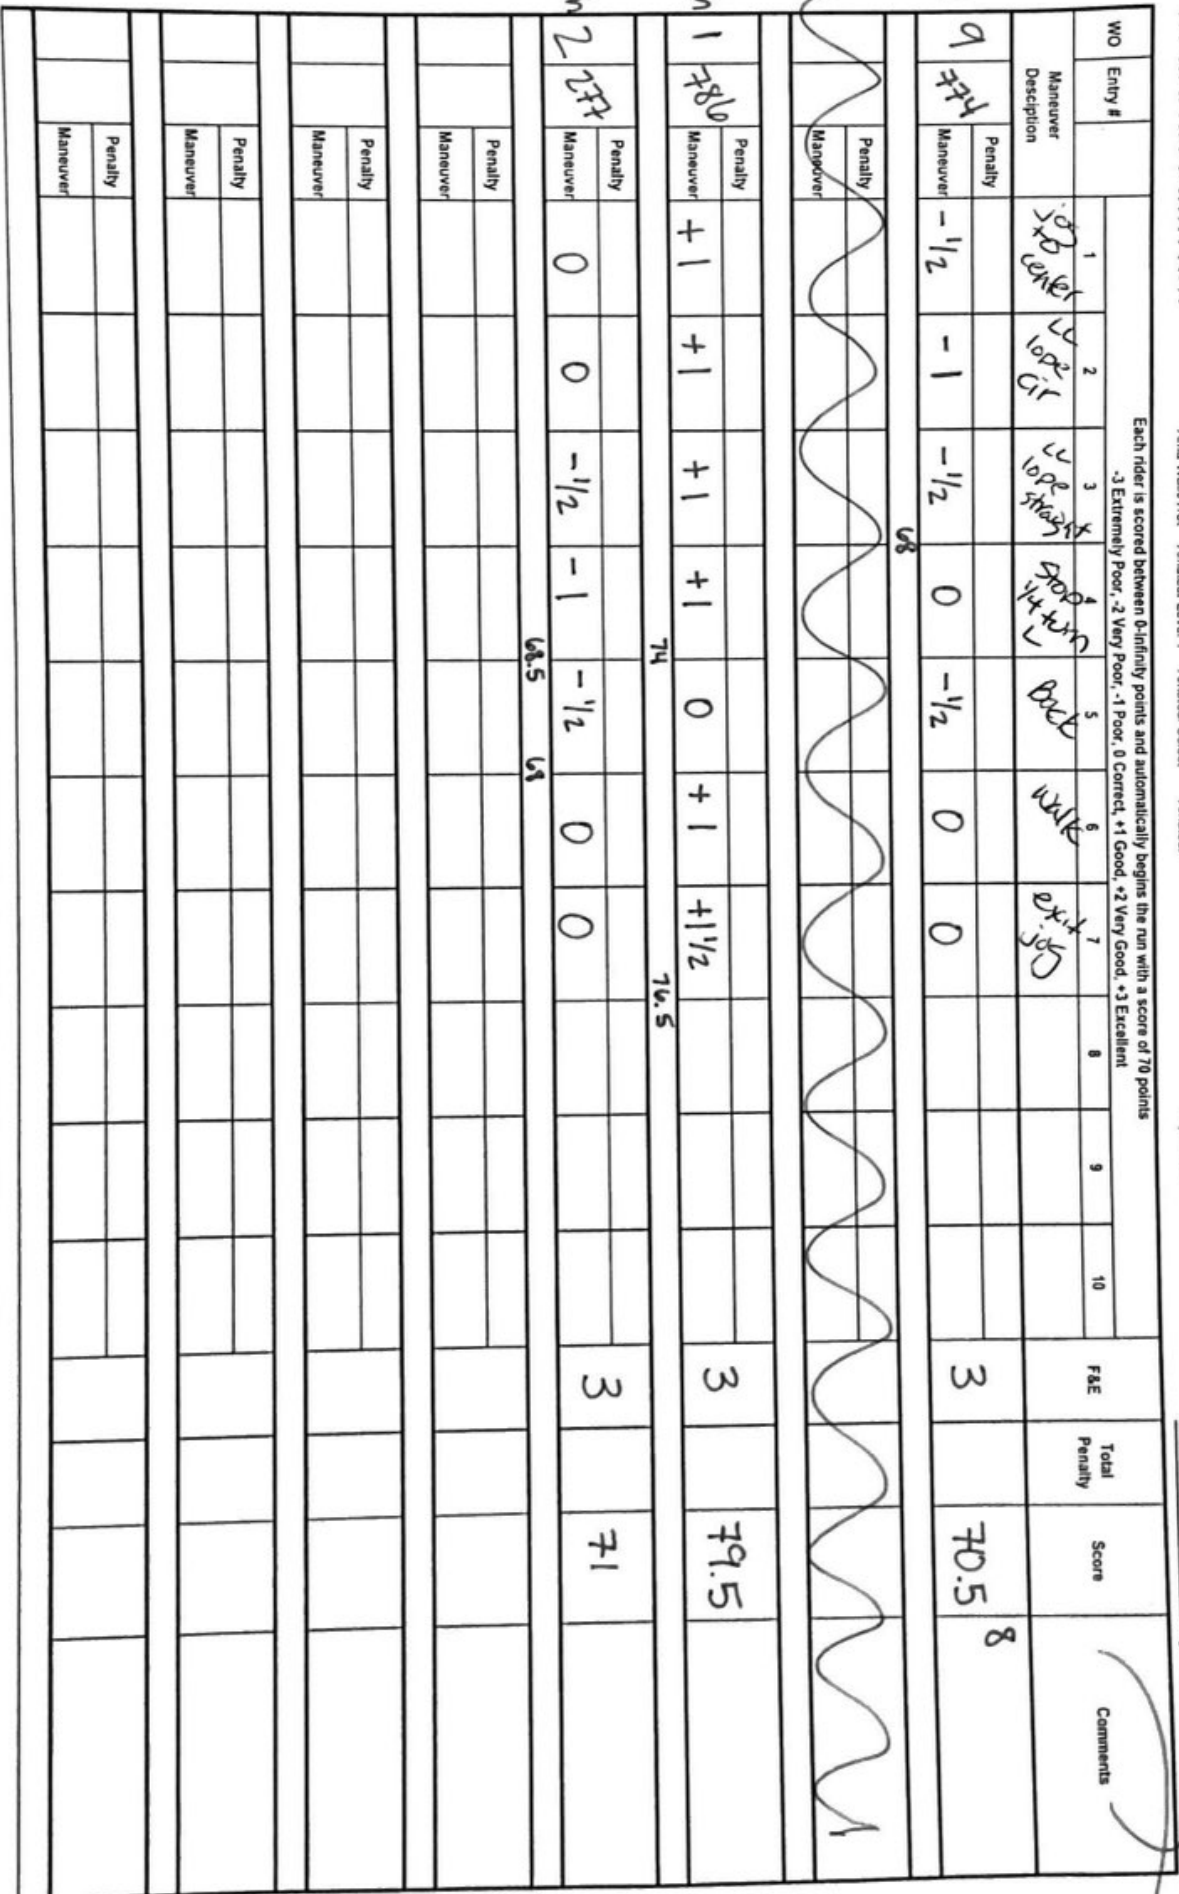 Each rider is scored between 0-Infinity points and automatically begins the run with a score of 70 points
-3 Extremely Poor, -2 Very Poor, -1 Poor, 0 Correct, +1 Good, +2 Very Good, +3 Excellent
WO Entry # 1 2 3 4 5 6 7 8 9 10 F&E Total Penalty Score Comments
Maneuver Desciption jog to center LL lope cir LL lope straight Stop 1/4 turn L Back Walk exit jog
Penalty 8
9 774 Maneuver -1/2 -1 -1/2 0 -1/2 0 0 3 70.5
68
Penalty
Maneuver
Penalty
1 786 Maneuver +1 +1 +1 +1 0 +1 +1 1/2 3 79.5
74 76.5
Penalty
2 277 Maneuver 0 0 -1/2 -1 -1/2 0 0 3 71
68.5 68
Penalty
Maneuver
Penalty
Maneuver
Penalty
Maneuver
Penalty
Maneuver